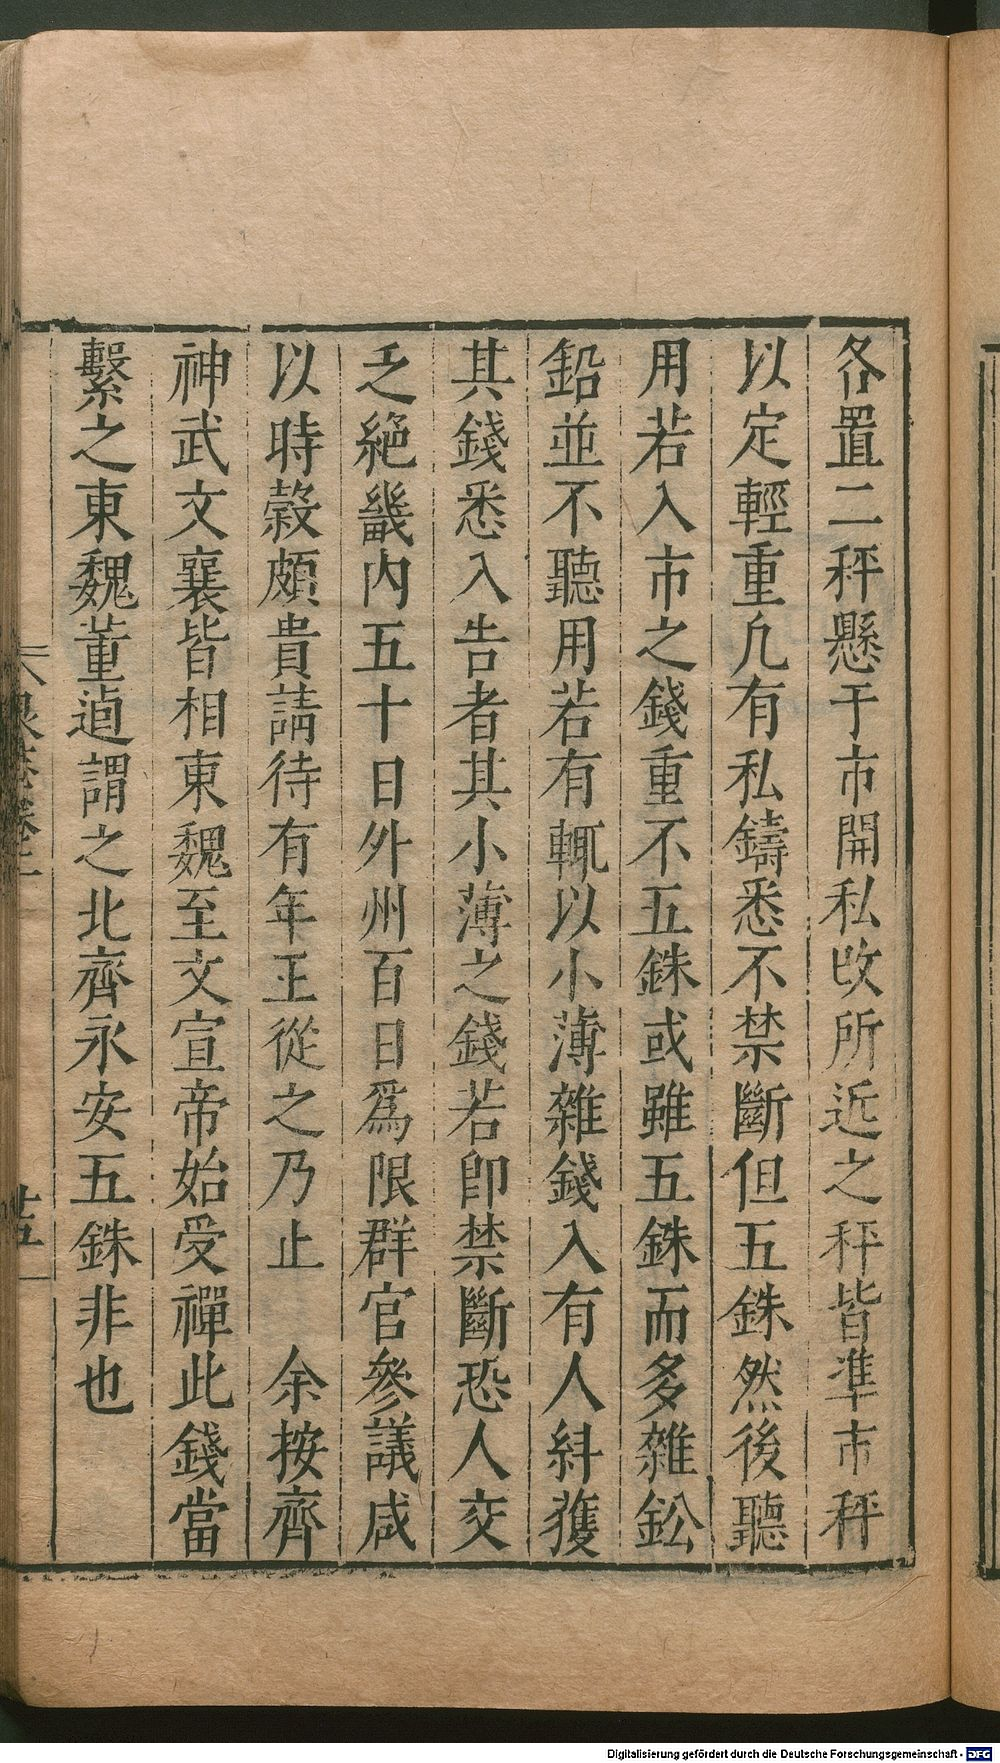 各置二秤懸于市開私収所近之秤皆準市秤
以定輕重凢有私鑄悉不禁斷但五銖然後聽
用若入市之錢重不五銖或雖五銖而多雜鈆
鉛並不聽用若有輒以小薄雜錢入有人糾獲
其錢悉入告者其小薄之錢若卽禁斷恐人交
乏絕畿內五十日外州百日爲限群官參議咸
以時榖頗貴請待有年王從之乃止　余按齊
神武文襄皆相東魏至文宣帝始受禪此錢當
繫之東魏董逌謂之北齊永安五銖非也
Digitalisierung gefördert durch die Deutsche Forschungsgemeinschaft - DFG